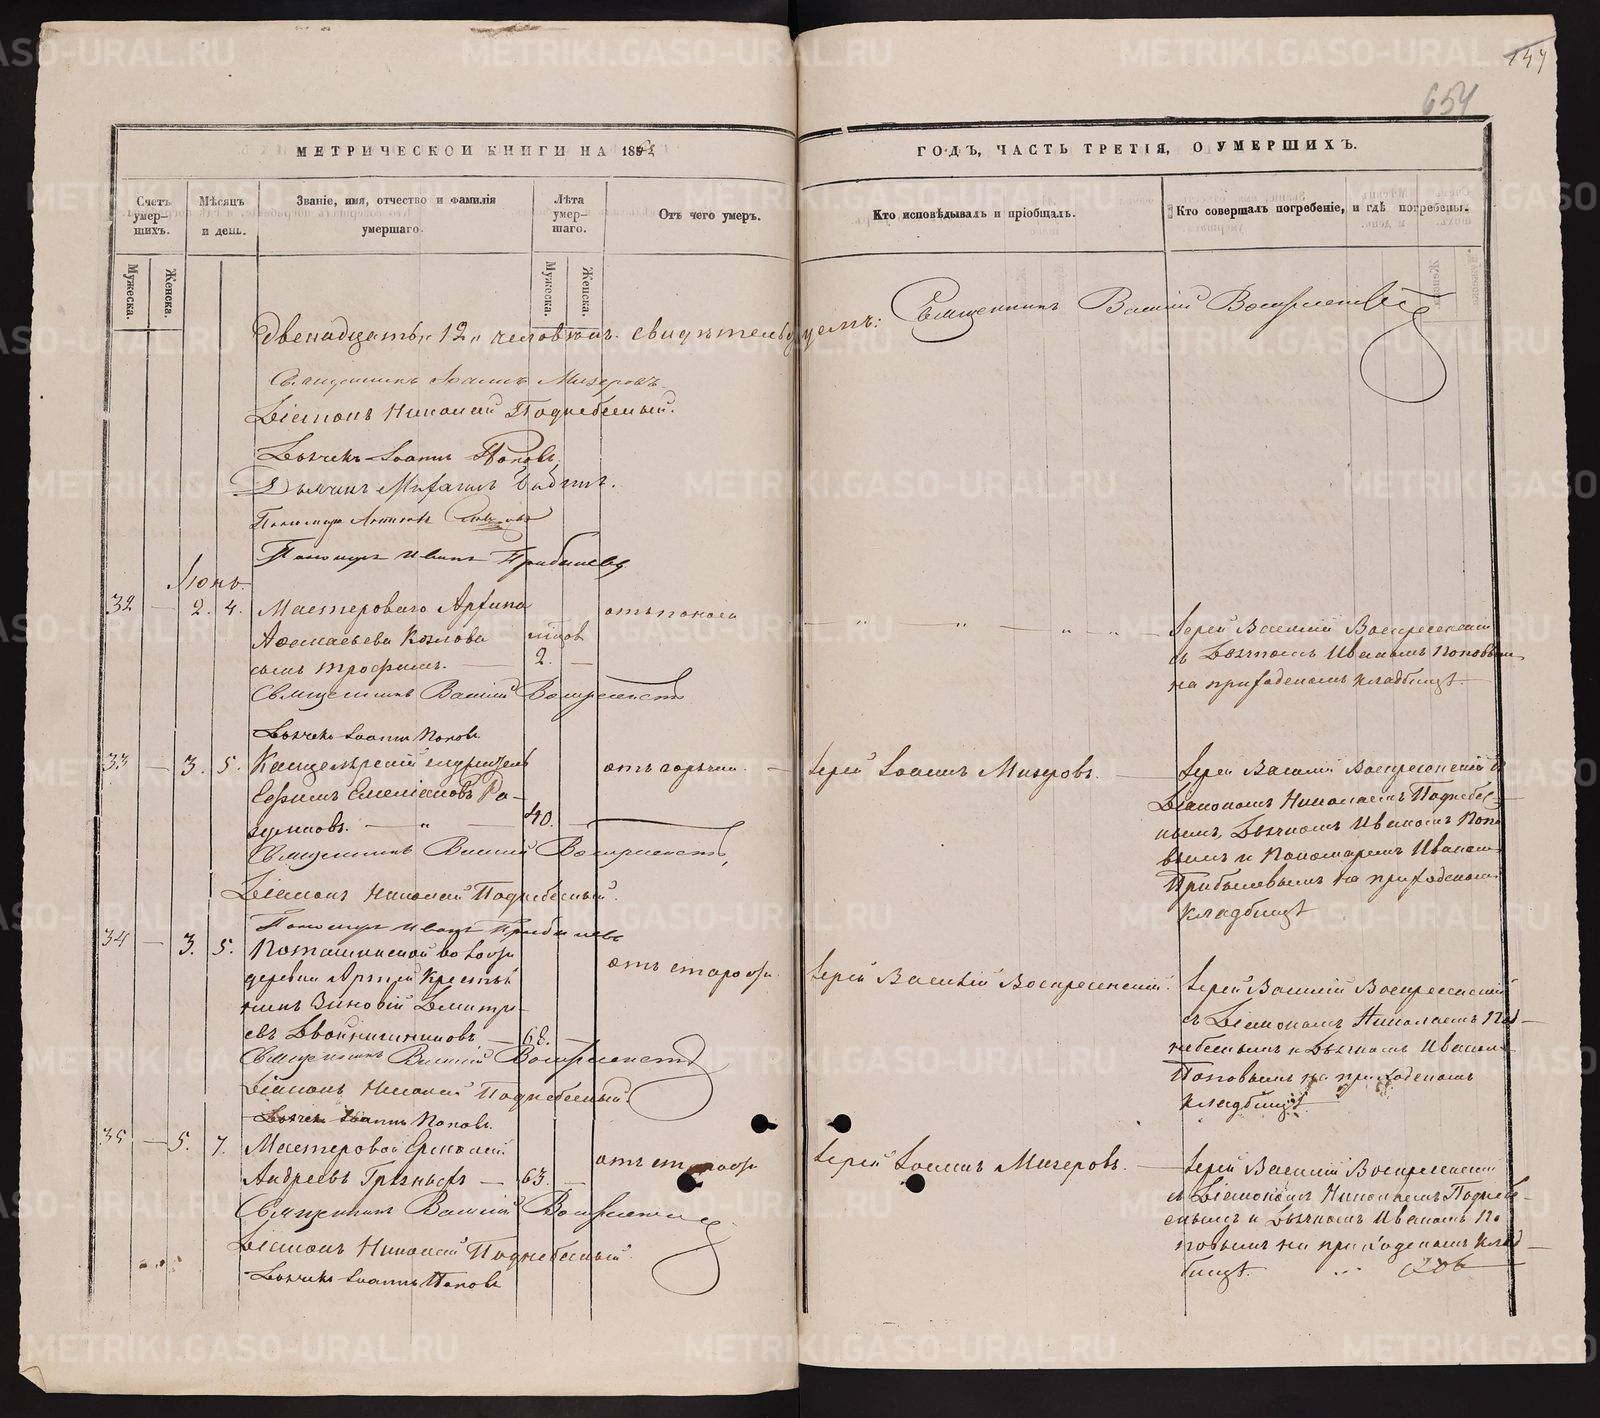 147
654
МЕТРИЧЕСКОЙ КНИГИ НА 186
ГОДЪ, ЧАСТЬ ТРЕТІЯ, О УМЕРШИХЪ.
Счетъ умер-шихъ.
Мѣсяцъ и день.
Званіе, имя, отчество и фамилія умершаго.
Лѣта умер-шаго.
Отъ чего умеръ.
Кто исповѣдывалъ и пріобщалъ.
Кто совершалъ погребеніе, и гдѣ погребены.
Мужеска.
Женска.
Мужеска.
Женска.
двенадцать „12„ человѣкъ. свидѣтельствуемъ:
Священникъ Василій Воскресенскій
Священникъ Іоаннъ Мизеровъ
Діаконъ Николай Поднебесный.
Дьячекъ Іоаннъ Поповъ
Дьячекъ Михаилъ
Пономарь
Пономарь Иванъ Прибылевъ
Іюнь
32 — 2. 4. Мастероваго Архипа
Афанасьева Козлова
сынъ Трофимъ. —
годов
2. —
отъ поноса
Іерей Василій Воскресенскій
съ Дьячкомъ Иваномъ Поповым
на приходскомъ кладбищѣ
Священникъ Василій Воскресенскій
Дьячекъ Іоаннъ Поповъ
33 — 3. 5. Канцелярскій служитель
Ефимъ Емеліановъ Ра-
зумновъ. — „ — 40. —
отъ горячки. —
Іерей Іоаннъ Мизеровъ. —
Іерей Василій Воскресенскій с
Діакономъ Николаемъ Поднебес-
нымъ, Дьячкомъ Иваномъ Попо
вымъ и Пономаремъ Иваном
Прибылевымъ на приходском
кладбищѣ
Священникъ Василій Воскресенскій
Діаконъ Николай Поднебесный.
Пономарь Иванъ Прибылевъ
34 — 3. 5. Поташинской волости
деревни Артей Крестья
нинъ Зиновій Димитрі-
евъ Двойнишниковъ — 68. —
отъ старости.
Іерей Василій Воскресенскій.
Іерей Василій Воскресенскій
съ Діакономъ Николаемъ Под—
небеснымъ и Дьячкомъ Иваном
Поповымъ на приходскомъ
кладбищѣ
Священникъ Василій Воскресенскій
Діаконъ Николай Поднебесный
Дьячекъ Іоаннъ Поповъ.
35 — 5. 7. Мастеровой Ермолай
Андреевъ Грязныхъ — 63. —
отъ старости
Іерей Іоаннъ Мизеровъ. —
Іерей Василій Воскресенскій
съ Діакономъ Николаемъ Поднебе-
снымъ и Дьячкомъ Иваномъ По
повымъ на приходскомъ клад—
бищѣ.
Священникъ Василій Воскресенскій
Діаконъ Николай Поднебесный.
Дьячекъ Іоаннъ Поповъ
METRIKI.GASO-URAL.RU